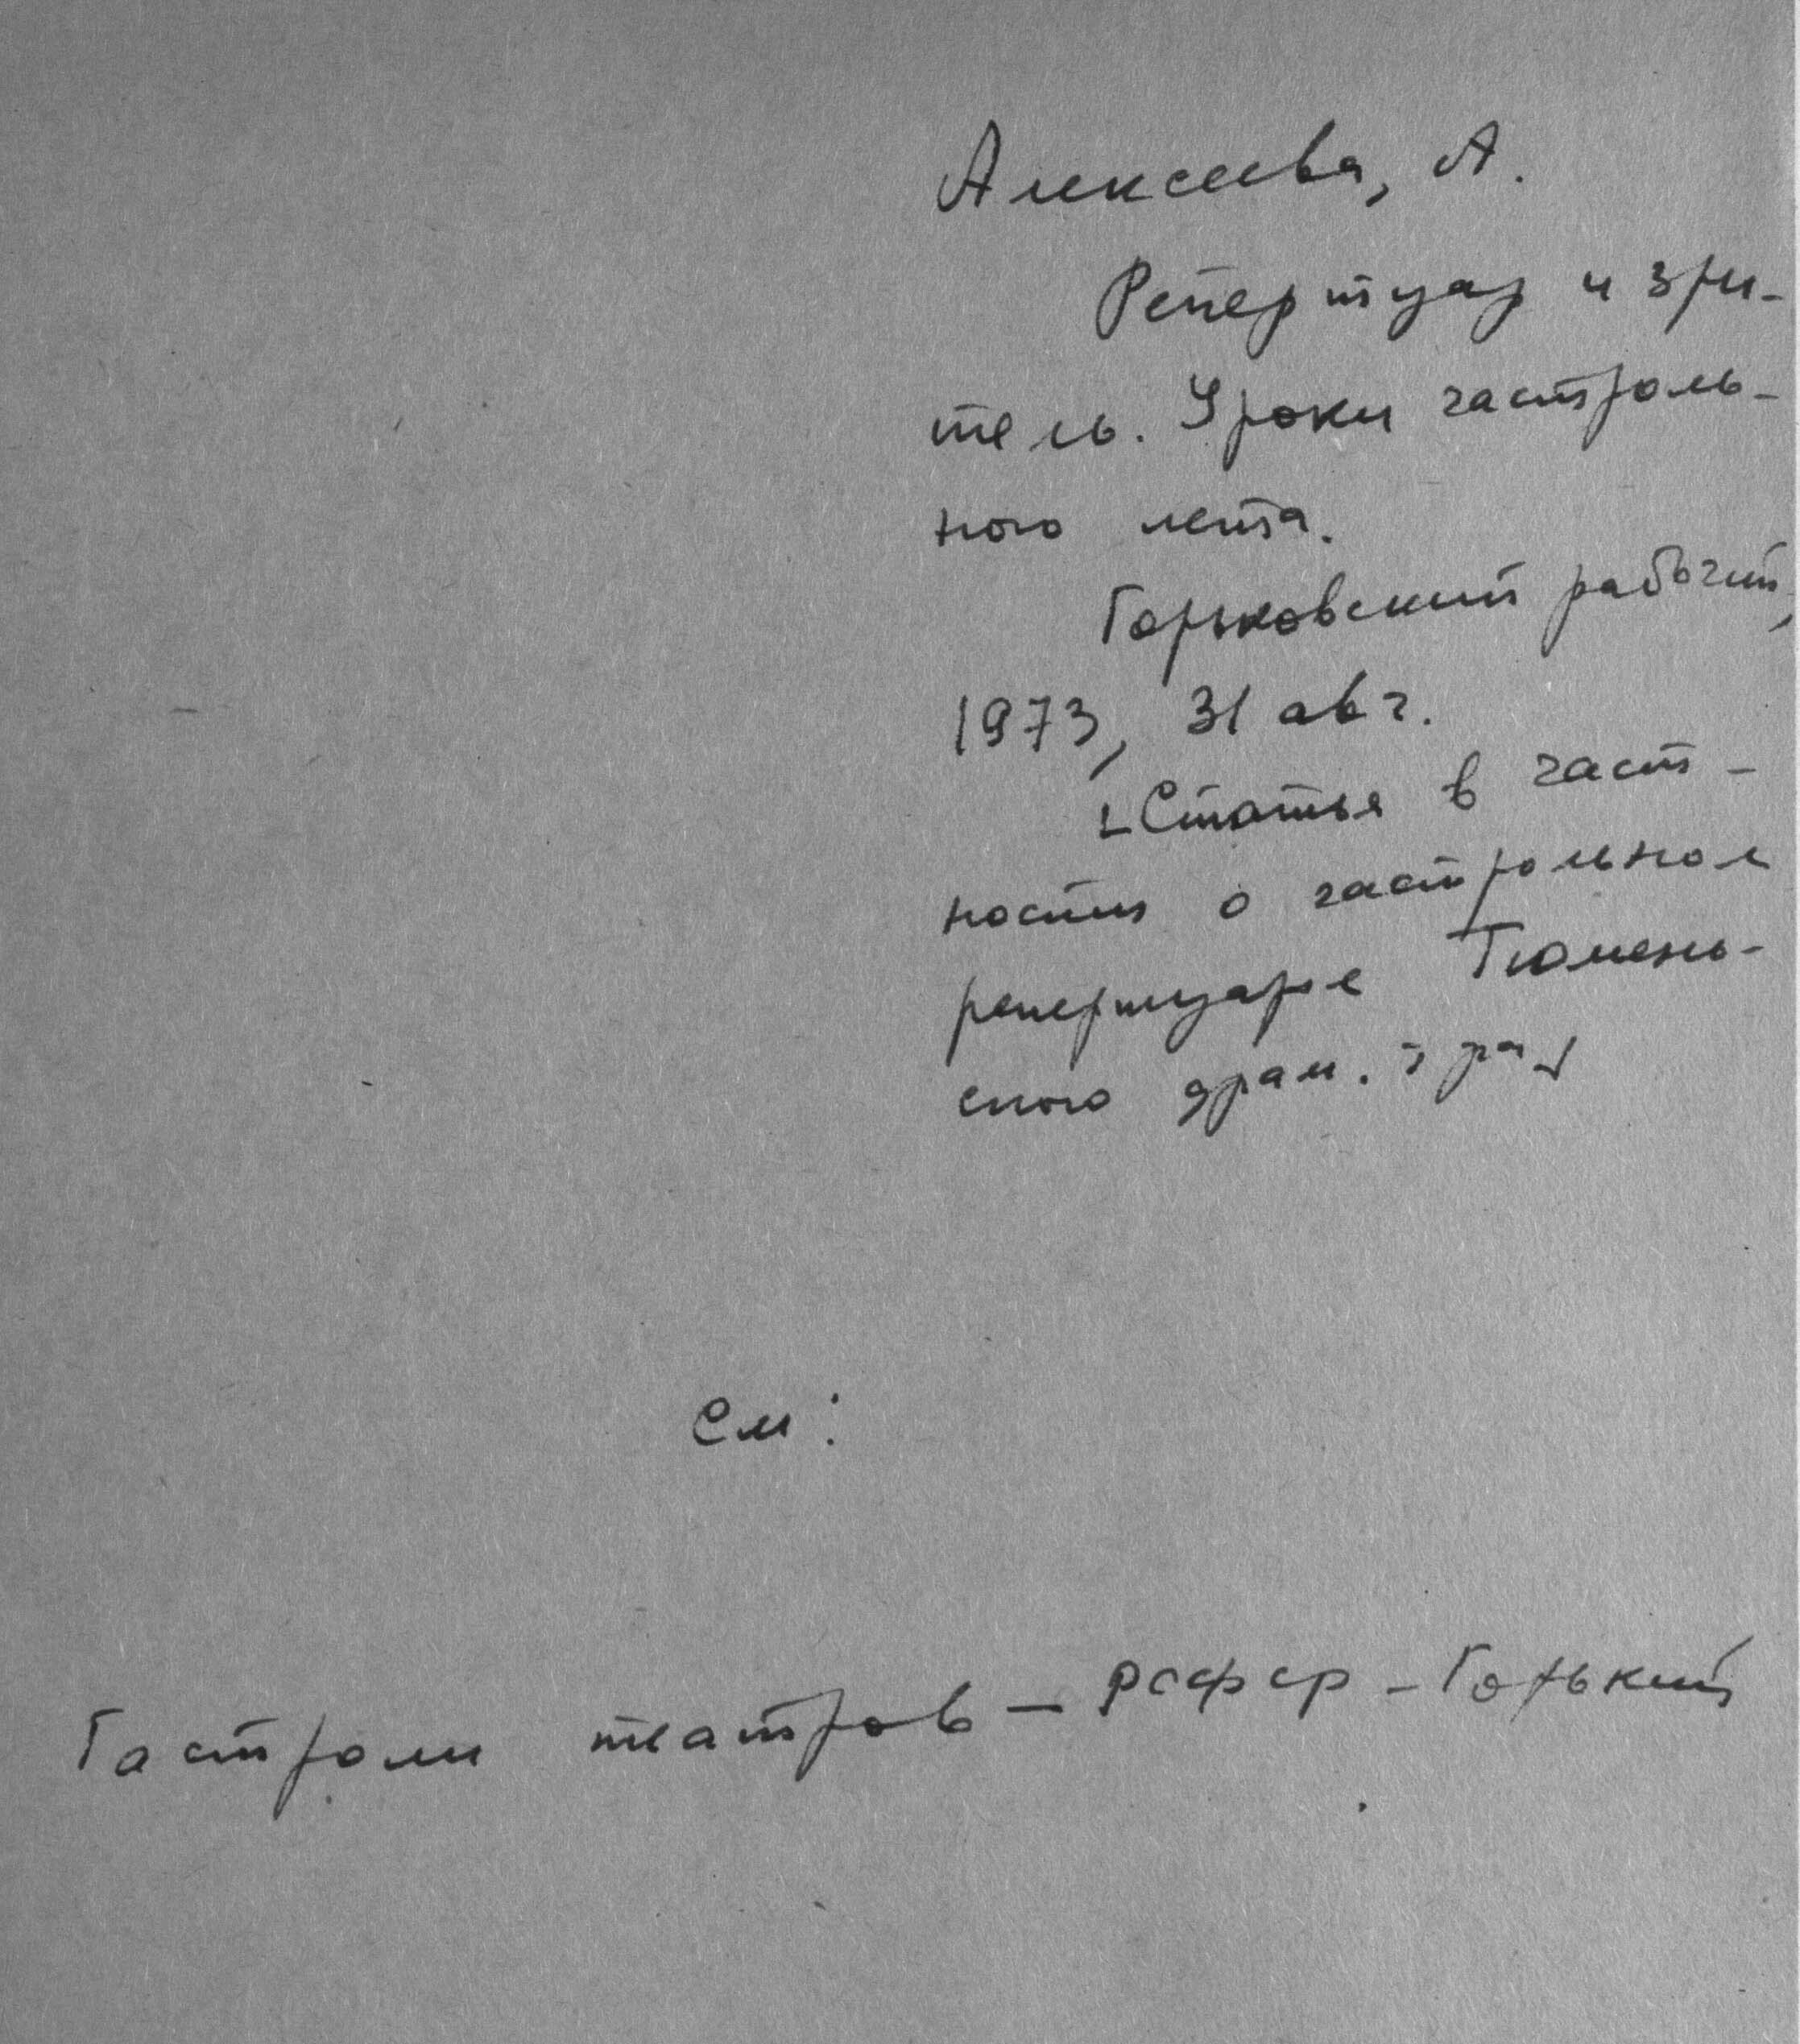 Алексеева, А.
Репертуар и зри-
тель. Уроки гастроль-
ного лета.
Горьковский рабочий,
1973, 31 авг.
[Статья в част-
ности о гастрольном
репертуаре Тюмень-
ского драм. т-ра]
См:
Гастроли театров - РСФСР - Горький